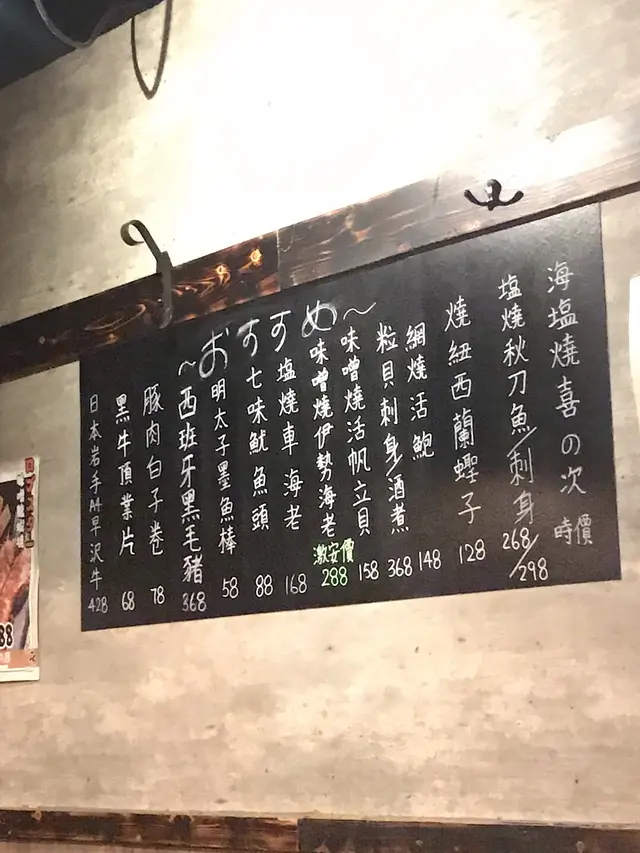 ~おすすめ~
海塩燒喜の次 時價
塩燒秋刀魚/刺身 268/298
燒紐西蘭蟶子 128
網燒活鮑 148
粒貝刺身/酒煮 368
味噌燒活帆立貝 158
味噌燒伊勢海老 激安價 288
塩燒車海老 168
七味魷魚頭 88
明太子墨魚棒 58
西班牙黑毛豬 368
豚肉白子卷 78
黑牛頂業片 68
日本岩手A4早沢牛 428